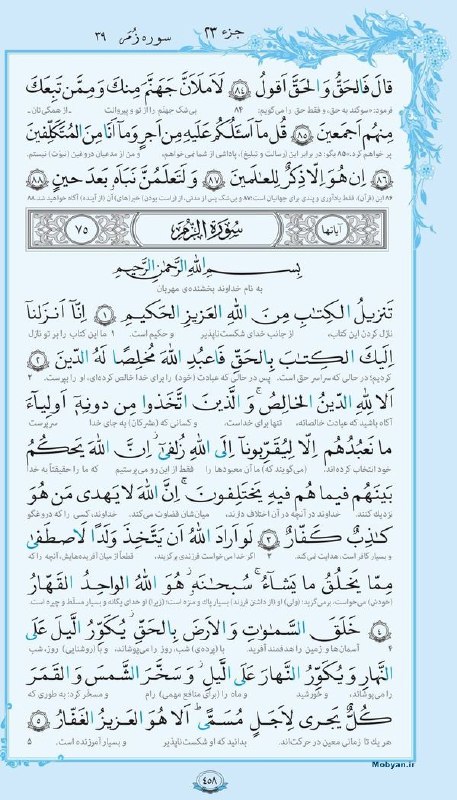 جزء ۲۳
سوره زُمَر ۳۹
قالَ فَالحَقُّ وَ الحَقَّ اَقولُ ﴿٨٤﴾ لَاَملَاَنَّ جَهَنَّمَ مِنكَ وَ مِمَّن تَبِعَكَ
فرمود: «سوگند به حق، و فقط حق را می‌گویم: ۸۴ بی‌شک جهنم را از تو و پیروانت از همگی‌تان ـ
مِنهُم اَجمَعینَ ﴿٨٥﴾ قُل ما اَسئَلُكُم عَلَيهِ مِن اَجرٍ وَ ما اَنَا مِنَ المُتَكَلِّفینَ
پر خواهم کرد.» ۸۵ بگو: در برابر این (رسالت و تبلیغ)، پاداشی از شما نمی‌خواهم، و من از مدعیان دروغین (نبوت) نیستم.
﴿٨٦﴾ اِن هُوَ اِلّا ذِكرٌ لِلعٰلَمینَ ﴿٨٧﴾ وَ لَتَعلَمُنَّ نَبَاَهُ بَعدَ حینٍ ﴿٨٨﴾
۸۶ این (قرآن)، فقط یادآوری و پندی برای جهانیان است؛ ۸۷ و بی‌شک، پس از مدتی، از (آینده) آگاه خواهید شد. ۸۸
آیاتها سُورَةُ الزُّمَر ٧٥
بِسمِ اللهِ الرَّحمٰنِ الرَّحیمِ
به نام خداوند بخشنده‌ی مهربان
تَنزیلُ الكِتٰبِ مِنَ اللهِ العَزیزِ الحَكیمِ ﴿١﴾ اِنّا اَنزَلنا
نازل کردن این کتاب، از جانب خدای شکست‌ناپذیر و حکیم است. ۱ ما این کتاب را بر تو نازل
اِلَيكَ الكِتٰبَ بِالحَقِّ فَاعبُدِ اللهَ مُخلِصًا لَهُ الدّینَ ﴿٢﴾
کردیم؛ در حالی که سراسر حق است. پس در حالی که عبادت (خود) را برای خدا خالص کرده‌ای، او را بپرست. ۲
اَلا لِلّٰهِ الدّینُ الخالِصُ ۚ وَ الَّذینَ اتَّخَذوا مِن دونِهٖ اَولِیاءَ
آگاه باشید که عبادت خالصانه، تنها برای خداست. و کسانی که (مشرکان) به جای خدا سرپرست
ما نَعبُدُهُم اِلّا لِیُقَرِّبونا اِلَی اللهِ زُلفیٰ اِنَّ اللهَ یَحكُمُ
خود انتخاب کرده‌اند، (می‌گویند که) ما آن معبودها را فقط از این رو می‌پرستیم که ما را حقیقتاً به خدا
بَینَهُم فیما هُم فیهِ یَختَلِفونَ ۗ اِنَّ اللهَ لا یَهدی مَن هُوَ
نزدیک کنند. خداوند در آنچه در آن اختلاف دارند، میان‌شان قضاوت می‌کند. خداوند، کسی را که دروغگو
كٰذِبٌ كَفّارٌ ﴿٣﴾ لَو اَرادَ اللهُ اَن یَتَّخِذَ وَلَدًا لَاصطَفیٰ
و بسیار کافر است، هدایت نمی‌کند. ۳ اگر خدا می‌خواست فرزندی برگزیند، قطعاً از میان آفریده‌هایش، آنچه را که
مِمّا یَخلُقُ ما یَشاءُ ۚ سُبحٰنَهٗ ۖ هُوَ اللهُ الواحِدُ القَهّارُ
(خودش) می‌خواست، برمی‌گزید؛ (ولی) او (از داشتن فرزند) بسیار پاک و منزه است؛ (زیرا) او خدای یگانه و بسیار مسلط و چیره است.
﴿٤﴾ خَلَقَ السَّمٰوٰتِ وَ الاَرضَ بِالحَقِّ ۖ یُكَوِّرُ الَّیلَ عَلَی
۴ آسمان‌ها و زمین را هدفمند آفرید. با (پرده‌ی) شب، روز را می‌پوشاند، و با (روشنایی) روز، شب
النَّهارِ وَ یُكَوِّرُ النَّهارَ عَلَی الَّیلِ ۖ وَ سَخَّرَ الشَّمسَ وَ القَمَرَ
را می‌پوشاند، و خورشید و ماه را (برای منافع مهمی) رام و مسخر کرد؛ به طوری که
كُلٌّ یَجری لِاَجَلٍ مُسَمًّی ۗ اَلا هُوَ العَزیزُ الغَفّارُ ﴿٥﴾
هر یک تا زمانی معین در حرکت‌اند. بدانید که او شکست‌ناپذیر و بسیار آمرزنده است. ۵
۴۵۸
Mobyan.ir